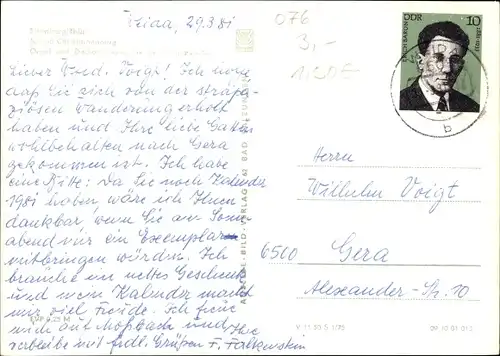 29.3.81
076
3,-
1,20€
Lieber Woed. Voigt! Ich hoffe
daß Sie sich von der strapa-
ziösen Wanderung erholt
haben und Ihre liebe Gattin
wohlbehalten nach Gera
gekommen ist. Ich habe
eine Bitte: Da Sie noch Kalender
1981 haben, wäre ich Ihnen
dankbar wenn Sie am Sonn-
abend mir ein Exemplar
mitbringen würden. Ich
brauche ein nettes Geschenk
und mein Kalender macht
mir viel Freude. Ich freue
mich auf und
verbleibe mit frdl. Grüßen F. Falkenstein
EVP 0,25 M
BILD-VERLAG
V 11 50
09 10 01 01
ERICH BARON
DDR
10
1881-1933
b
Herrn
Wilhelm Voigt
6500 Gera
Alexander-Str. 10